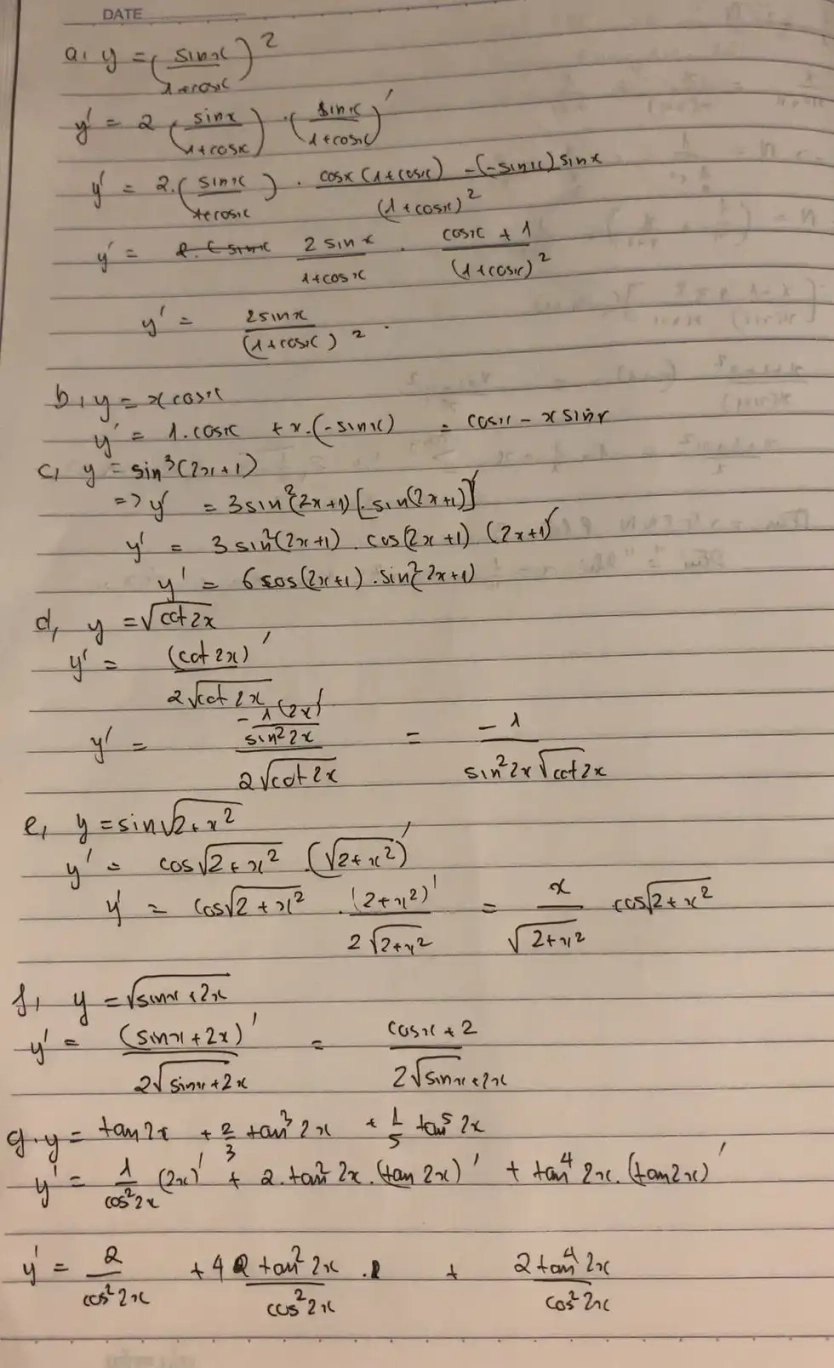 DATE
a, y = (sinx / 1+cosx)²
y' = 2 (sinx / 1+cosx) . (sinx / 1+cosx)'
y' = 2.(sinx / 1+cosx) . cosx(1+cosx) - (-sinx)sinx / (1+cosx)²
y' = 2sinx / 1+cosx . cosx + 1 / (1+cosx)²
y' = 2sinx / (1+cosx)² .
b, y = x cosx
y' = 1.cosx + x.(-sinx) = cosx - x sinx
c, y = sin³(2x+1)
=> y' = 3sin²(2x+1)[sin(2x+1)]'
y' = 3 sin²(2x+1) . cos(2x+1) (2x+1)'
y' = 6cos(2x+1) . sin²(2x+1)
d, y = √cot2x
y' = (cot2x)' / 2√cot2x
y' = -1(2x)' / sin²2x / 2√cot2x = -1 / sin²2x√cot2x
e, y = sin√2+x²
y' = cos√2+x² . (√2+x²)'
y' = cos√2+x² . (2+x²)' / 2√2+x² = x / √2+x² cos√2+x²
f, y = √sinx+2x
y' = (sinx+2x)' / 2√sinx+2x = cosx+2 / 2√sinx+2x
g. y = tan2x + 2/3 tan³2x + 1/5 tan⁵2x
y' = 1 / cos²2x (2x)' + 2.tan²2x.(tan2x)' + tan⁴2x.(tan2x)'
y' = 2 / cos²2x + 4 tan²2x / cos²2x + 2tan⁴2x / cos²2x